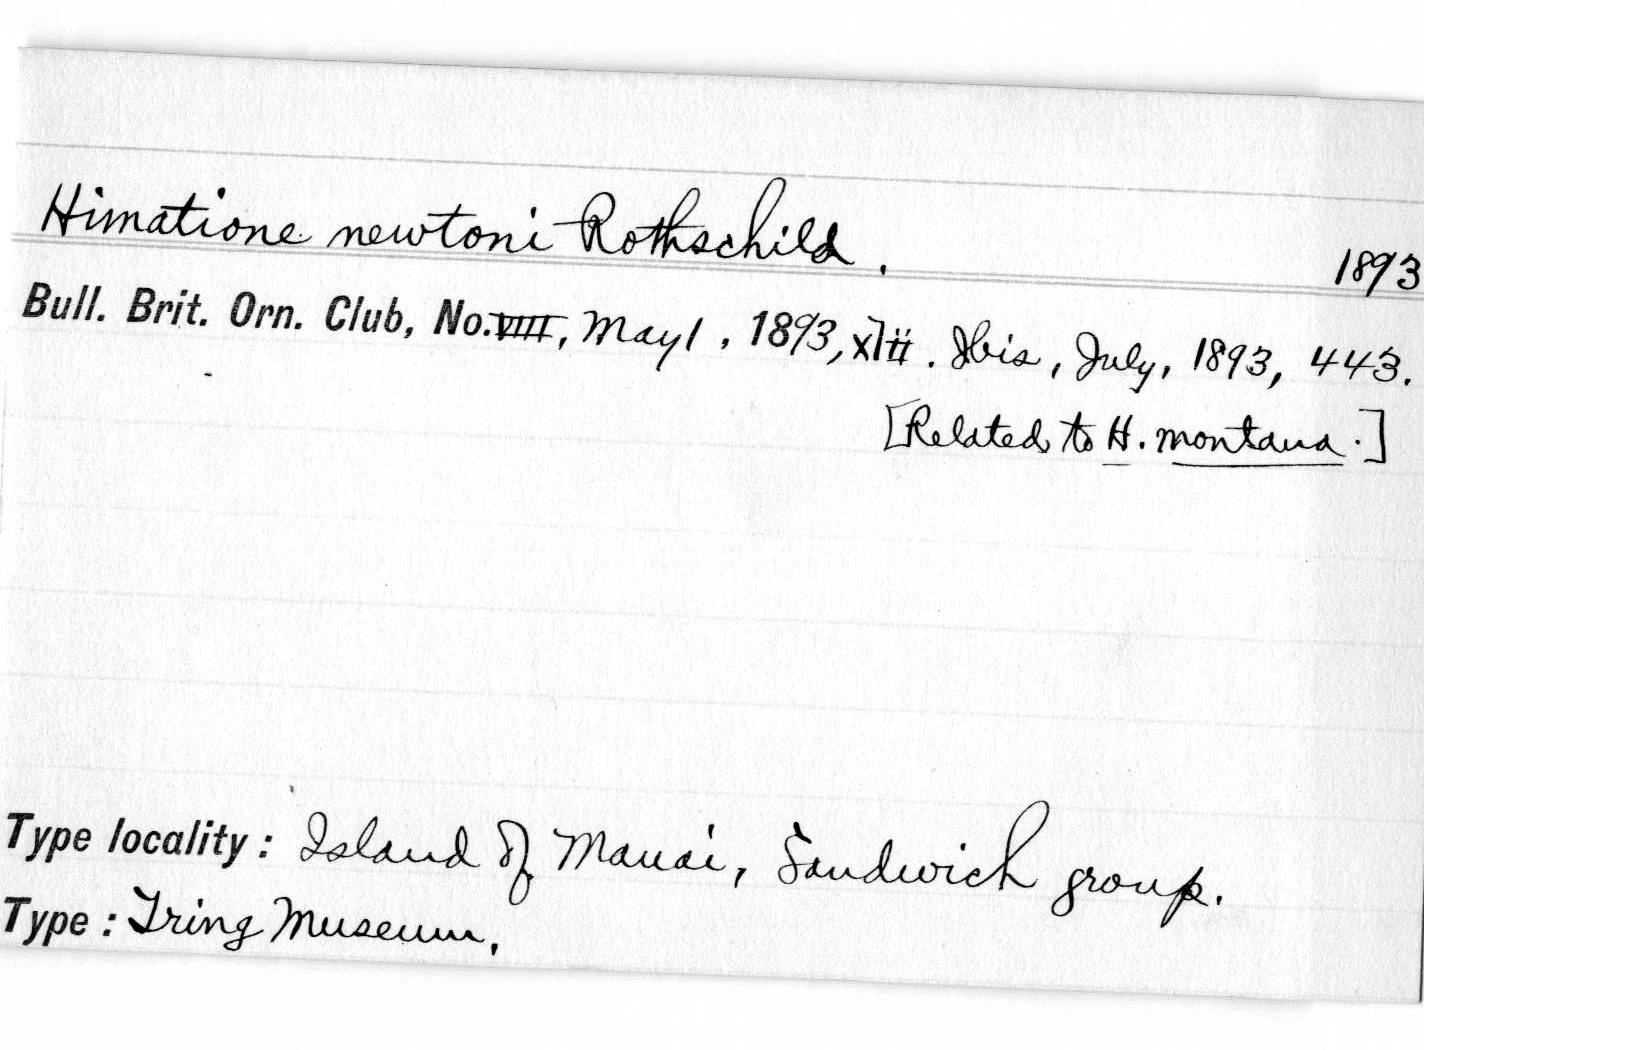 Himatione newtoni Rothschild. 1893
Bull. Brit. Orn. Club, No. VIII, May 1, 1893, xlii. Ibis, July, 1893, 443.
[Related to H. montana.]
Type locality: Island of Mauai, Sandwich group.
Type: Tring Museum.